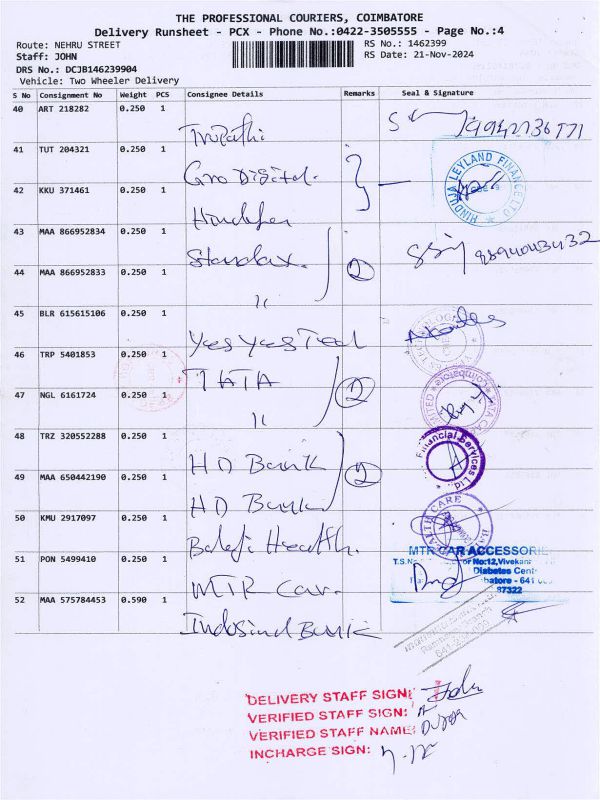 THE PROFESSIONAL COURIERS, COIMBATORE
Delivery Runsheet - PCX - Phone No.:0422-3505555 - Page No.:4
Route: NEHRU STREET RS No.: 1462399
Staff: JOHN RS Date: 21-Nov-2024
DRS No.: DCJB146239904
Vehicle: Two Wheeler Delivery
S No Consignment No Weight PCS Consignee Details Remarks Seal & Signature
40 ART 218282 0.250 1 Tirupathi
41 TUT 204321 0.250 1 Gro Digital.
42 KKU 371461 0.250 1
HINDUJA LEYLAND FINANCE LTD
43 MAA 866952834 0.250 1
44 MAA 866952833 0.250 1 〃 2
45 BLR 615615106 0.250 1 Yes Yes Teel
46 TRP 5401853 0.250 1 TATA
47 NGL 6161724 0.250 1 〃 2
48 TRZ 320552288 0.250 1 HD Bank
Financial Services Ltd.
49 MAA 650442190 0.250 1 HD Bank 2
50 KMU 2917097 0.250 1 Balaji Health.
HEALTH CARE
51 PON 5499410 0.250 1 MTR Car.
MTR CAR ACCESSORIES
No:12,Vivekan
Diabetes Cent
batore - 641
87322
52 MAA 575784453 0.590 1 Indusind Bank
DELIVERY STAFF SIGN: John
VERIFIED STAFF SIGN:
VERIFIED STAFF NAME:
INCHARGE SIGN: